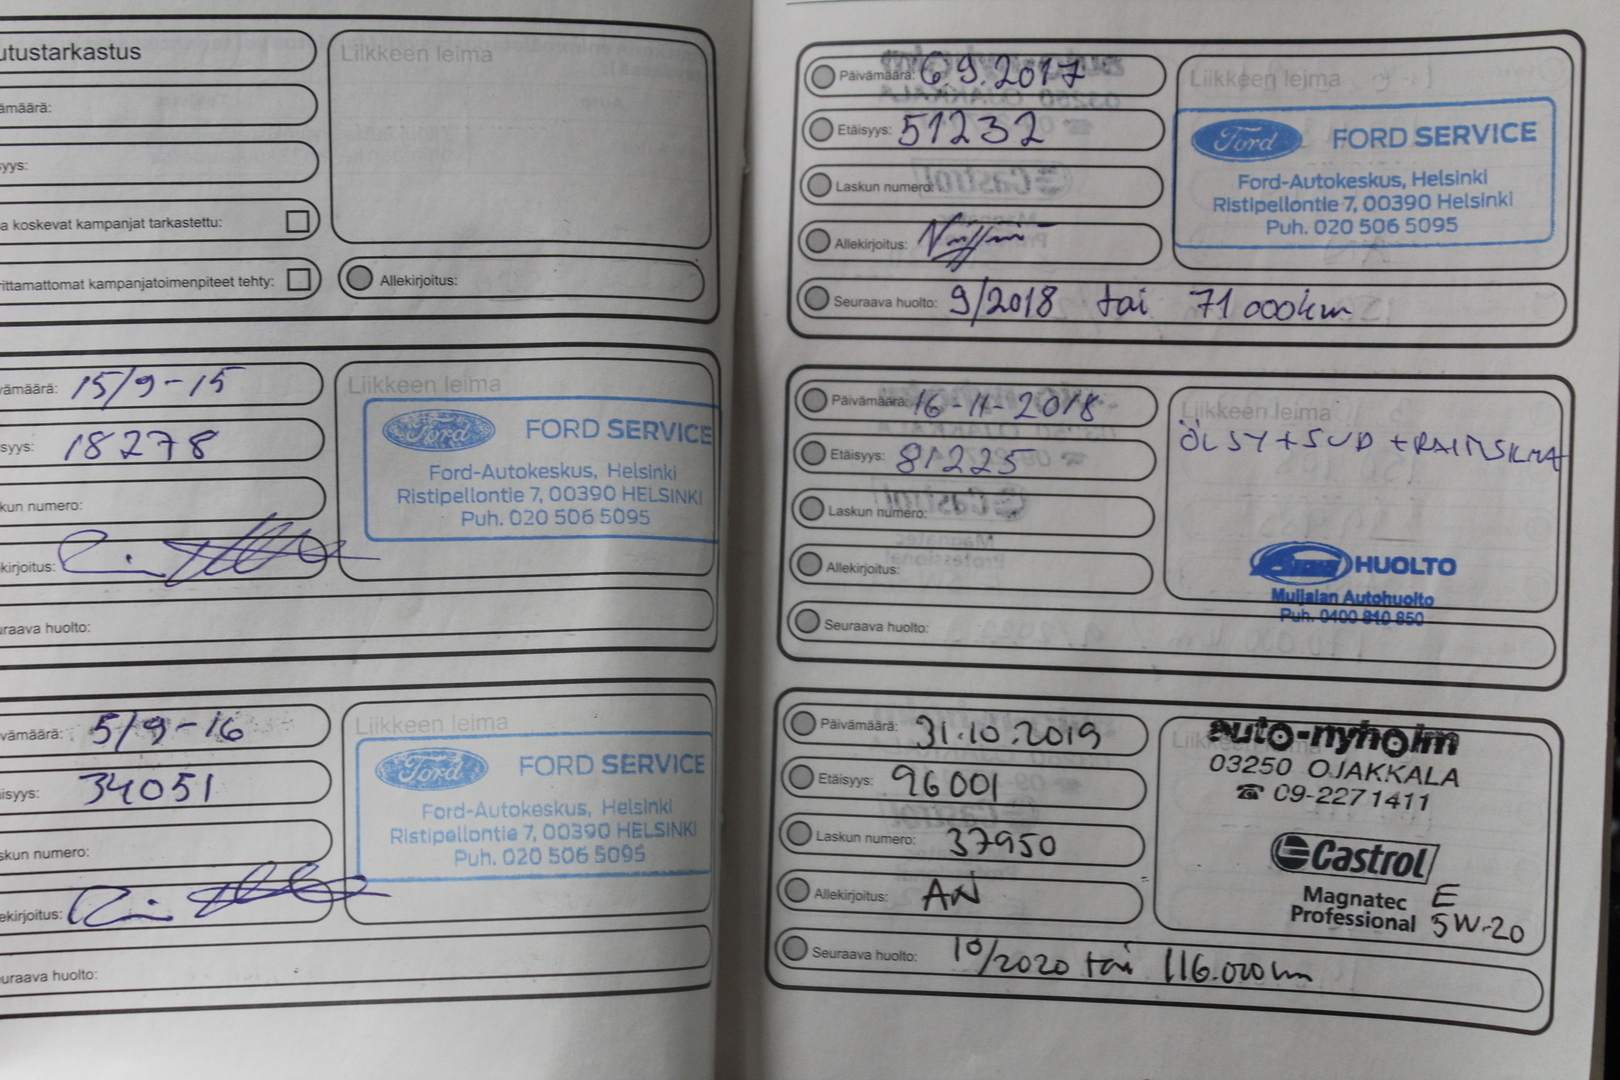 utustarkastus
Liikkeen leima
ämäärä:
syys:
a koskevat kampanjat tarkastettu:
rittamattomat kampanjatoimenpiteet tehty:
Allekirjoitus:
vämäärä: 15/9-15
Liikkeen leima
syys: 18278
Ford FORD SERVICE
Ford-Autokeskus, Helsinki
Ristipellontie 7, 00390 HELSINKI
Puh. 020 506 5095
kun numero:
kirjoitus:
uraava huolto:
vämäärä: 5/9-16
Liikkeen leima
isyys: 34051
Ford FORD SERVICE
Ford-Autokeskus, Helsinki
Ristipellontie 7, 00390 HELSINKI
Puh. 020 506 5095
skun numero:
ekirjoitus:
euraava huolto:
Päivämäärä: 6 9.2017
Liikkeen leima
Etäisyys: 51232
Ford FORD SERVICE
Ford-Autokeskus, Helsinki
Ristipellontie 7, 00390 Helsinki
Puh. 020 506 5095
Laskun numero:
Allekirjoitus:
Seuraava huolto: 9/2018 tai 71 000km
Päivämäärä: 16-11-2018
Liikkeen leima
Etäisyys: 81225
ÖLJY+SUD +
Laskun numero:
HUOLTO
Muijalan Autohuolto
Puh. 0400 810 850
Allekirjoitus:
Seuraava huolto:
Päivämäärä: 31.10.2019
Etäisyys: 96001
Laskun numero: 37950
Allekirjoitus: AN
auto-nyholm
03250 OJAKKALA
☎ 09-2271411
Castrol
Magnatec E
Professional 5W-20
Seuraava huolto: 10/2020 tai 116.000km